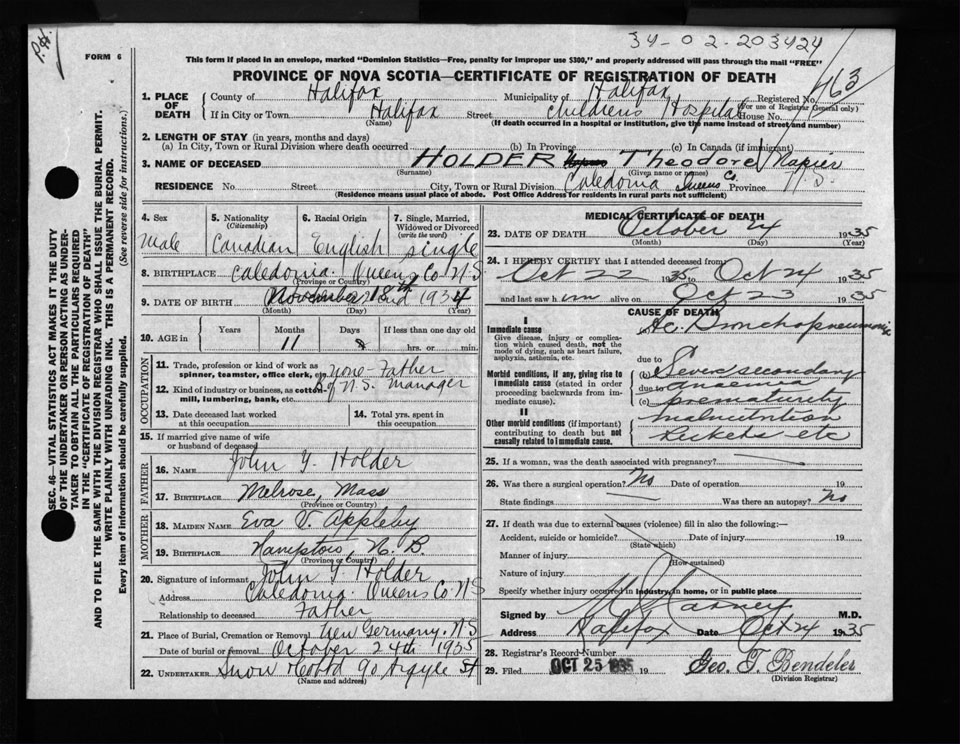 34-02-203424
P.H.
FORM 6
This form if placed in an envelope, marked "Dominion Statistics—Free, penalty for improper use $300," and properly addressed will pass through the mail "FREE"
PROVINCE OF NOVA SCOTIA—CERTIFICATE OF REGISTRATION OF DEATH
1. PLACE OF DEATH
County of Halifax Municipality of Halifax Registered No. 463
(For use of Registrar General only)
If in City or Town Halifax Street Childrens Hospital House No.
(Name) (If death occurred in a hospital or institution, give the name instead of street and number)
2. LENGTH OF STAY (in years, months and days)
(a) In City, Town or Rural Division where death occurred (b) In Province (c) In Canada (if immigrant)
3. NAME OF DECEASED HOLDER Theodore Napier
(Surname) (Given name or names)
RESIDENCE No. Street City, Town or Rural Division Caledonia Queens Co. Province N.S.
(Residence means usual place of abode. Post Office Address for residents in rural parts not sufficient)
4. Sex 5. Nationality (Citizenship) 6. Racial Origin 7. Single, Married, Widowed or Divorced (write the word)
Male Canadian English single
8. BIRTHPLACE Caledonia. Queens Co N S
(Province or Country)
9. DATE OF BIRTH November 18th 1934
(Month) (Day)
10. AGE in Years Months Days If less than one day old
11 hrs. or min.
OCCUPATION
11. Trade, profession or kind of work as spinner, teamster, office clerk, etc. none Father
12. Kind of industry or business, as cotton-mill, lumbering, bank, etc. B of N.S. manager
13. Date deceased last worked at this occupation
14. Total yrs. spent in this occupation
15. If married give name of wife or husband of deceased
FATHER
16. Name John Y. Holder
17. Birthplace Melrose, Mass
(Province or Country)
MOTHER
18. MAIDEN NAME Eva V. Appleby
19. BIRTHPLACE Hampton, N. B.
(Province or Country)
20. Signature of informant John Y Holder
Address Caledonia. Queens Co. N S
Relationship to deceased Father
21. Place of Burial, Cremation or Removal New Germany. N S
Date of burial or removal October 24th 1935
22. UNDERTAKER Snow & Co Ltd 90 Argyle St
(Name and address)
MEDICAL CERTIFICATE OF DEATH
23. DATE OF DEATH October 24 1935
(Month) (Day) (Year)
24. I HEREBY CERTIFY that I attended deceased from
Oct 22 1935 to Oct 24 1935
and last saw him alive on Oct 23 1935
CAUSE OF DEATH
I
Immediate cause
Give disease, injury or complication which caused death, not the mode of dying, such as heart failure, asphyxia, asthenia, etc.
Ac. Bronchopneumonia
due to
Morbid conditions, if any, giving rise to immediate cause (stated in order proceeding backwards from immediate cause).
(b) Severe secondary
due to anaemia
(c) prematurity
II
Other morbid conditions (if important) contributing to death but not causally related to immediate cause.
malnutrition
Rickets etc
25. If a woman, was the death associated with pregnancy?
26. Was there a surgical operation? No Date of operation 19
State findings Was there an autopsy? No
27. If death was due to external causes (violence) fill in also the following:—
Accident, suicide or homicide? Date of injury 19
(State which)
Manner of injury
(How sustained)
Nature of injury
Specify whether injury occurred in industry, in home, or in public place
Signed by M.D.
Address Halifax Date Oct 24 1935
28. Registrar's Record Number
29. Filed OCT 25 1935 19 Geo. T. Bendeler
(Division Registrar)
SEC. 46—VITAL STATISTICS ACT MAKES IT THE DUTY
OF THE UNDERTAKER OR PERSON ACTING AS UNDER-
TAKER TO OBTAIN ALL THE PARTICULARS REQUIRED
IN THE "CERTIFICATE OF REGISTRATION OF DEATH"
AND TO FILE THE SAME WITH THE DIVISION REGISTRAR WHO SHALL ISSUE THE BURIAL PERMIT.
WRITE PLAINLY WITH UNFADING INK. THIS IS A PERMANENT RECORD.
Every item of information should be carefully supplied. (See reverse side for instructions.)